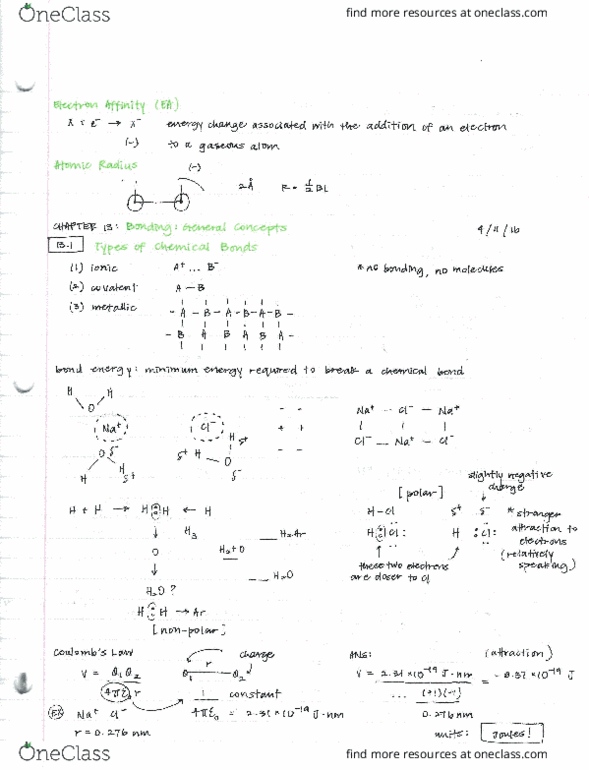 OneClass
find more resources at oneclass.com
Electron Affinity (EA)
X + e⁻ → X⁻ energy change associated with the addition of an electron
(-) to a gaseous atom
Atomic Radius (-)
2Å R = 1/2 BL
CHAPTER 13: Bonding: General Concepts
13.1 Types of Chemical Bonds
(1) ionic A⁺ ... B⁻ * no bonding, no molecules
(2) covalent A — B
(3) metallic - A - B - A - B - A - B -
- B A B A B A -
bond energy: minimum energy required to break a chemical bond
H H
O
Na⁺ Cl⁻
- -
+ +
- -
Na⁺ -- Cl⁻ — Na⁺
Cl⁻ -- Na⁺ - Cl⁻
O δ⁻
H H δ⁺
δ⁺ H O H δ⁺
δ⁻
slightly negative charge
[polar]
H - Cl δ⁺ δ⁻
H : Cl : H : Cl :
* stronger attraction to electrons (relatively speaking)
these two electrons are closer to Cl
H + H → H : H ← H
H₃
H₂Ar
O
H₂ + O
H₂O
H₂O ?
H : H → Ar
[non-polar]
Coulomb's Law
V = Q₁Q₂ / 4πε₀r
charge
Q₁ r Q₂
1 / 4πε₀ constant = 2.31 × 10⁻¹⁹ J·nm
EX Na⁺ Cl⁻
r = 0.276 nm
ANS: (attraction)
V = 2.31 × 10⁻¹⁹ J·nm ... (+1)(-1) / 0.276 nm = - 8.37 × 10⁻¹⁹ J
units: Joules!
OneClass
find more resources at oneclass.com